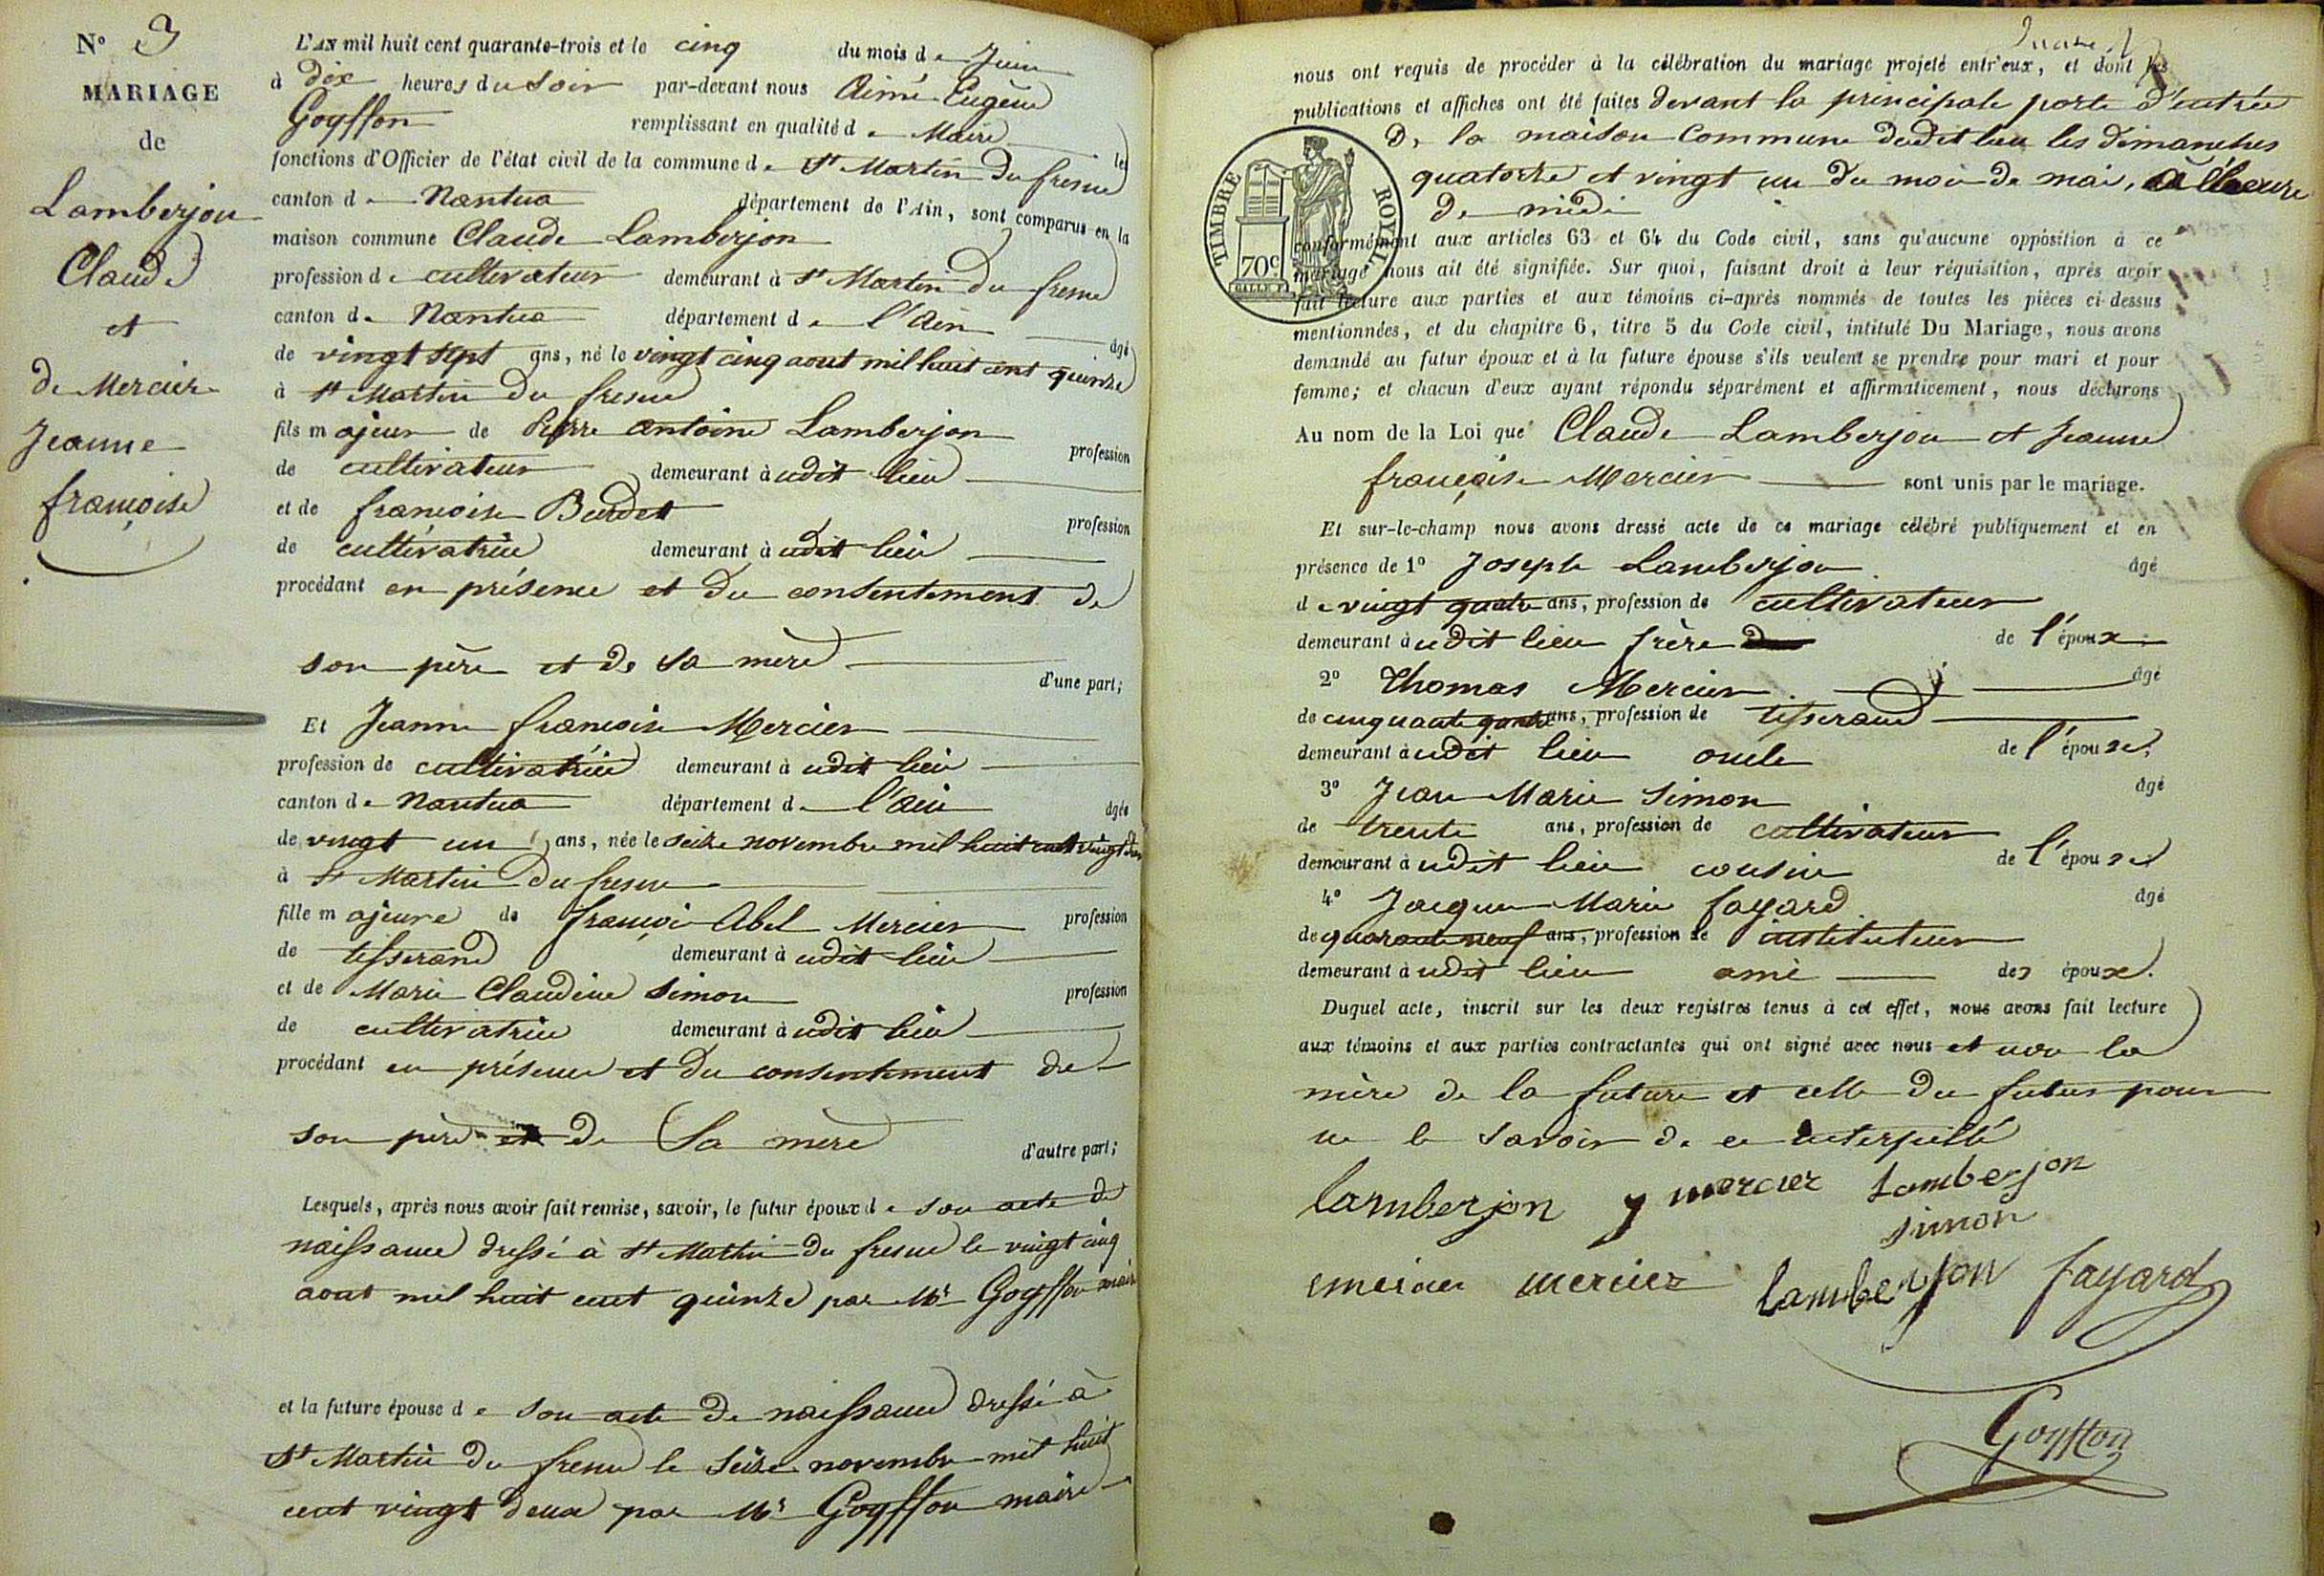 N° 3
MARIAGE
de
Lamberjon
Claude
et
de Mercier
Jeanne
françoise
L'AN mil huit cent quarante-trois et le cinq du mois de Juin
à dix heures du Soir par-devant nous Aimé Eugène
Goyffon remplissant en qualité de Maire les
fonctions d'Officier de l'état civil de la commune de St Martin du fresne
canton de Nantua département de l'Ain, sont comparus en la
maison commune Claude Lamberjon
profession de cultivateur demeurant à St Martin du fresne
canton de Nantua département de l'Ain âgé
de vingt sept ans, né le vingt cinq aout mil huit cent quinze
à St Martin du fresne
fils majeur de Pierre antoine Lamberjon profession
de cultivateur demeurant àudit lieu
et de françoise Burdet profession
de cultivatrice demeurant àudit lieu
procédant en présence et du consentement de
son père et de sa mère d'une part;
Et Jeanne françoise Mercier
profession de cultivatrice demeurant à udit lieu
canton de Nantua département de l'Ain âgée
de vingt un ans, née le seize novembre mil huit cent vingt
à St Martin du fresne
fille majeure de françois Abel Mercier profession
de tisserand demeurant à udit lieu
et de Marie Claudine Simon profession
de cultivatrice demeurant à udit lieu
procédant en présence et du consentement de
son père et de Sa mère d'autre part;
Lesquels, après nous avoir fait remise, savoir, le futur époux de son acte de
naissance dressé à St Martin du fresne le vingt cinq
aout mil huit cent quinze par Mr Goyffon maire
et la future épouse de son acte de naissance dressé à
St Martin du fresne le Seize novembre mil huit
cent vingt deux par Mr Goyffon maire
nous ont requis de procéder à la célébration du mariage projeté entr'eux, et dont les
publications et affiches ont été faites devant la principale porte d'entrée
De la maison Commune dudit lieu les dimanches
quatorze et vingt un du mois de mai, à l'heure
de midi
TIMBRE ROYAL
70c
conformément aux articles 63 et 64 du Code civil, sans qu'aucune opposition à ce
mariage nous ait été signifiée. Sur quoi, faisant droit à leur réquisition, après avoir
fait lecture aux parties et aux témoins ci-après nommés de toutes les pièces ci dessus
mentionnées, et du chapitre 6, titre 5 du Code civil, intitulé Du Mariage, nous avons
demandé au futur époux et à la future épouse s'ils veulent se prendre pour mari et pour
femme; et chacun d'eux ayant répondu séparément et affirmativement, nous déclarons
Au nom de la Loi que Claude Lamberjon et Jeanne
françoise Mercier sont unis par le mariage.
Et sur-le-champ nous avons dressé acte de ce mariage célébré publiquement et en
présence de 1° Joseph Lamberjon âgé
de vingt quatre ans, profession de cultivateur
demeurant àudit lieu frère de l'époux;
2° Thomas Mercier âgé
de cinquante ans, profession de tisserand
demeurant àudit lieu oncle de l'épouse;
3° Jean Marie Simon âgé
de trente ans, profession de cultivateur
demeurant à udit lieu cousin de l'épouse
4° Jacques Marie fayard âgé
de quarante neuf ans, profession de instituteur
demeurant à udit lieu ami des époux.
Duquel acte, inscrit sur les deux registres tenus à cet effet, nous avons fait lecture
aux témoins et aux parties contractantes qui ont signé avec nous et non la
mère de la future et celle du futur pour
ne le savoir de ce interpellé
lamberjon j mercier Lamberjon
simon
mercier lamberjon fayard
Goyffon